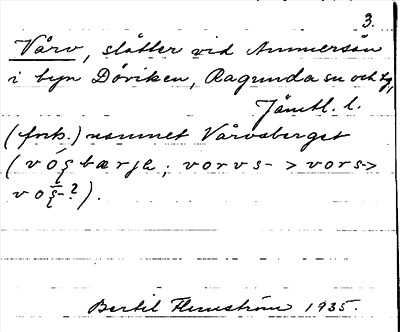 3.
Vårv, slåtter vid Ammersån
i byn Döviken, Ragunda sn och tg,
Jämtl. l.
(förb.) namnet Vårvsberget
(vóʂbærje; vorvs- > vors->
voʂ-?).
Bertil Flemström 1935.